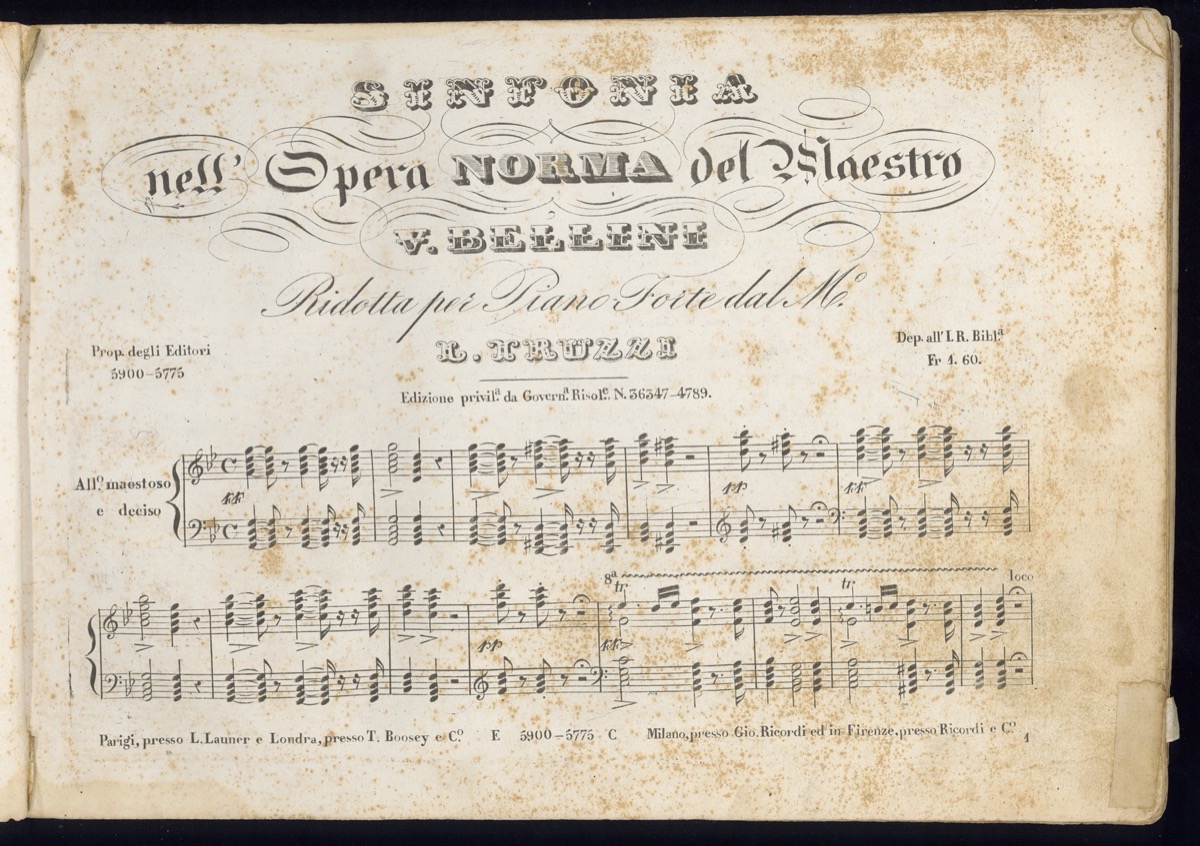 SINFONIA
nell' Opera NORMA del Maestro
V. BELLINI
Ridotta per Piano Forte dal M.º
L. TRUZZI
Prop. degli Editori
5900-5775
Dep. all' I. R. Bibl.ª
Fr 1. 60.
Edizione privil.ª da Govern.ª Risol.e N. 36347-4789.
All.º maestoso
e deciso
ff
pp
ff
8ª
loco
tr
tr
pp
ff
Parigi, presso L. Launer e Londra, presso T. Boosey e C.º E 5900-5775 C Milano, presso Gio. Ricordi ed in Firenze, presso Ricordi e C.º
1